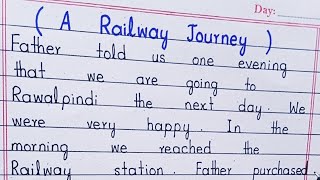 Day:
( A Railway Journey )
Father told us one evening
that we are going to
Rawalpindi the next day. We
were very happy. In the
morning we reached the
Railway station. Father purchased